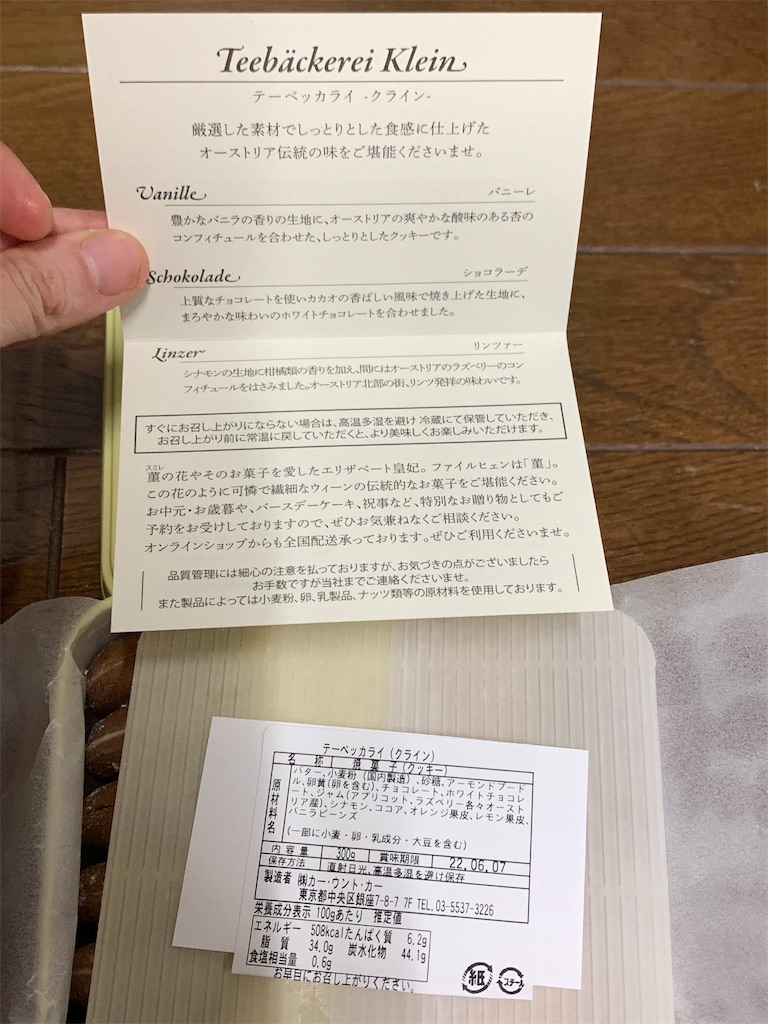 Teebäckerei Klein
テーベッカライ -クライン-
厳選した素材でしっとりとした食感に仕上げた
オーストリア伝統の味をご堪能くださいませ。
Vanille バニーレ
豊かなバニラの香りの生地に、オーストリアの爽やかな酸味のある杏の
コンフィチュールを合わせた、しっとりとしたクッキーです。
Schokolade ショコラーデ
上質なチョコレートを使いカカオの香ばしい風味で焼き上げた生地に、
まろやかな味わいのホワイトチョコレートを合わせました。
Linzer リンツァー
シナモンの生地に柑橘類の香りを加え、間にはオーストリアのラズベリーのコン
フィチュールをはさみました。オーストリア北部の街、リンツ発祥の味わいです。
すぐにお召し上がりにならない場合は、高温多湿を避け 冷蔵にて保管していただき、
お召し上がり前に常温に戻していただくと、より美味しくお楽しみいただけます。
スミレ
菫の花やそのお菓子を愛したエリザベート皇妃。ファイルヒェンは「菫」。
この花のように可憐で繊細なウィーンの伝統的なお菓子をご堪能ください。
お中元・お歳暮や、バースデーケーキ、祝事など、特別なお贈り物としてもご
予約をお受けしておりますので、ぜひお気兼ねなくご相談ください。
オンラインショップからも全国配送承っております。ぜひご利用くださいませ。
品質管理には細心の注意を払っておりますが、お気づきの点がございましたら
お手数ですが当社までご連絡くださいませ。
また製品によっては小麦粉、卵、乳製品、ナッツ類等の原材料を使用しております。
テーベッカライ（クライン）
名 称 焼 菓 子（クッキー）
原材料名 バター、小麦粉（国内製造）、砂糖、アーモンドプード
ル、卵黄(卵を含む)、チョコレート、ホワイトチョコレ
ート、ジャム(アプリコット、ラズベリー各々オースト
リア産)、シナモン、ココア、オレンジ果皮、レモン果皮、
バニラビーンズ
（一部に小麦・卵・乳成分・大豆を含む）
内 容 量 300g 賞味期限 22.06.07
保存方法 直射日光、高温多湿を避け保存
製造者 ㈱カー・ウント・カー
東京都中央区銀座7-8-7 7F TEL.03-5537-3226
栄養成分表示 100gあたり 推定値
エネルギー 508kcal たんぱく質 6.2g
脂 質 34.0g 炭水化物 44.1g
食塩相当量 0.6g
お早目にお召し上がりください。
紙 スチール